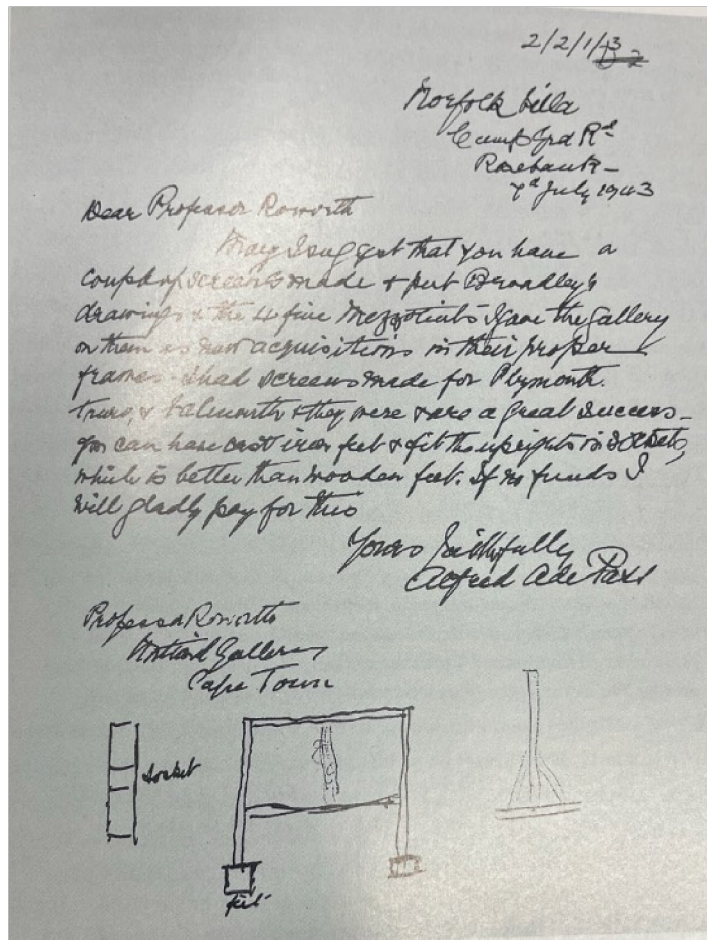 2/2/1/3
Norfolk Villa
Camp Grd Rd
Rosebank -
7d July, 1943
Dear Professor Roworth
May I suggest that you have a
couple of screens made & put Broadley's
drawings & the 4 fine Mezzotints I gave the Gallery
on them as new acquisitions in their proper
frames. I had screens made for Plymouth.
Truro, & Falmouth & they were & are a great success -
You can have cast iron feet & fit the uprights in sockets,
which is better than wooden feet. If no funds I
will gladly pay for this
Yours faithfully
Alfred A de Pass
Professor Roworth
National Gallery
Cape Town
socket
feet